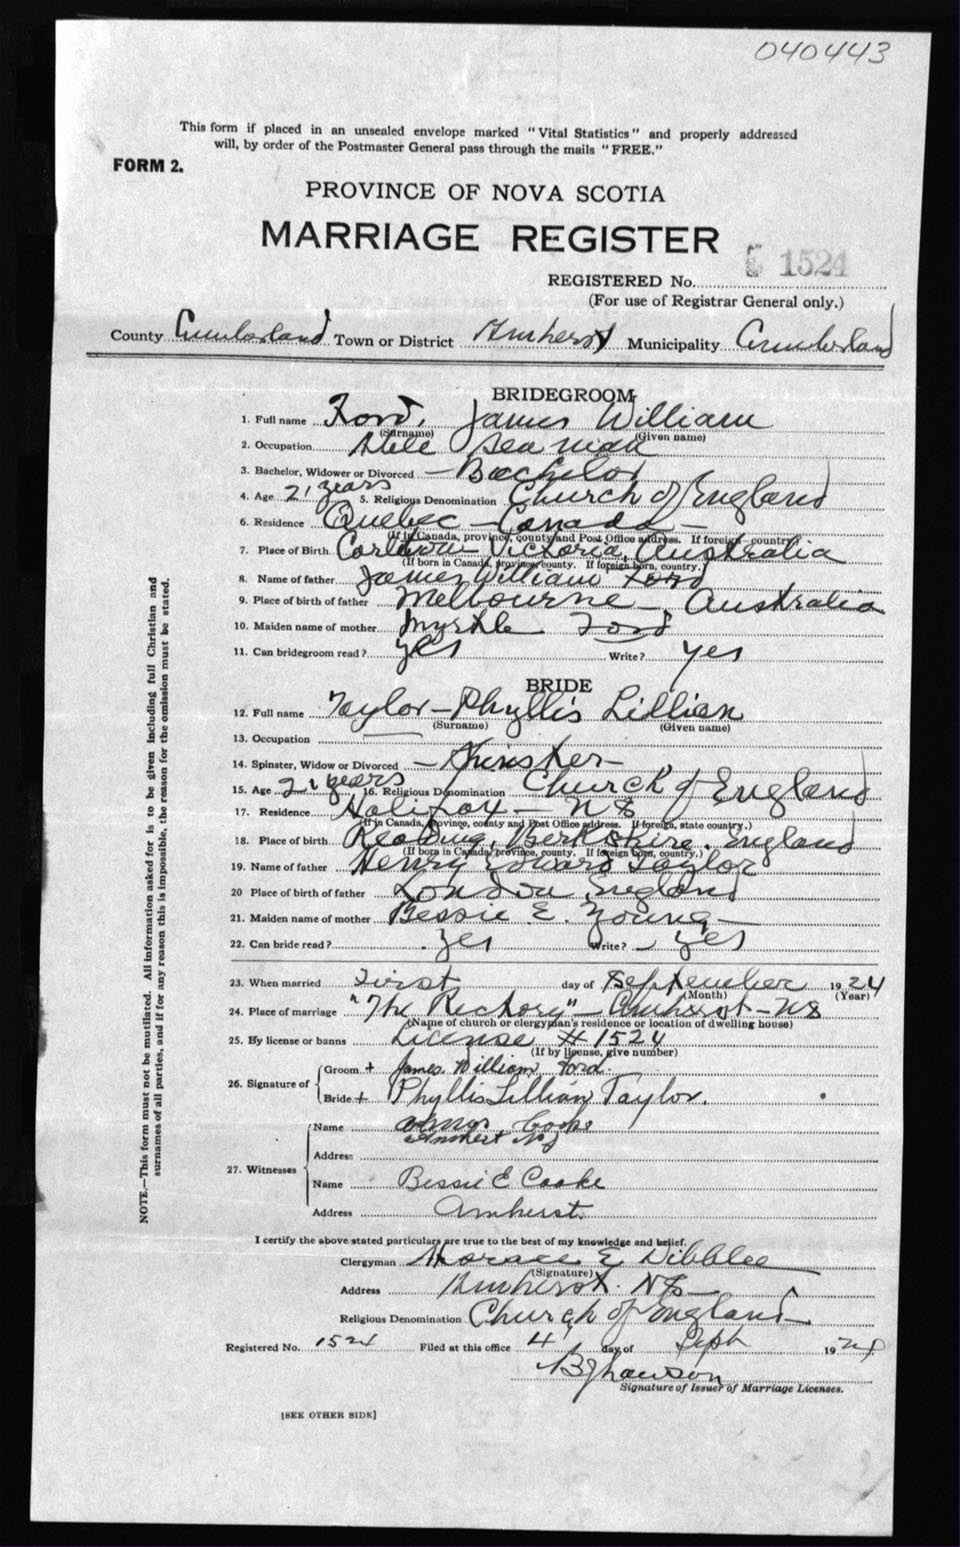 040443
This form if placed in an unsealed envelope marked "Vital Statistics" and properly addressed
will, by order of the Postmaster General pass through the mails "FREE."
FORM 2.
PROVINCE OF NOVA SCOTIA
MARRIAGE REGISTER
1524
REGISTERED No.
(For use of Registrar General only.)
County Cumberland Town or District Amherst Municipality Cumberland
BRIDEGROOM
1. Full name Ford, James William
(Surname) (Given name)
2. Occupation Seaman
3. Bachelor, Widower or Divorced — Bachelor
4. Age 21 years 5. Religious Denomination Church of England
6. Residence Quebec — Canada —
(If in Canada, province, county and Post Office address. If foreign country)
7. Place of Birth Victoria, Australia
(If born in Canada, province, county. If foreign born, country.)
8. Name of father James William Ford
9. Place of birth of father Melbourne — Australia
10. Maiden name of mother Myrtle Ford
11. Can bridegroom read? yes Write? yes
BRIDE
12. Full name Taylor — Phyllis Lillian
(Surname) (Given name)
13. Occupation —
14. Spinster, Widow or Divorced — Spinster —
15. Age 21 years 16. Religious Denomination Church of England
17. Residence Halifax — NS
(If in Canada, province, county and Post Office address. If foreign, state country.)
18. Place of birth Reading, Berkshire, England
(If born in Canada, province, county. If foreign born, country.)
19. Name of father Henry Edward Taylor
20 Place of birth of father London, England
21. Maiden name of mother Bessie E. Young —
22. Can bride read? Yes Write? — yes
23. When married First day of September 1924
(Month) (Year)
24. Place of marriage "The Rectory" — Amherst — NS
(Name of church or clergyman's residence or location of dwelling house)
25. By license or banns License # 1524
(If by license, give number)
26. Signature of Groom + James William Ford.
Bride + Phyllis Lillian Taylor.
27. Witnesses Name Cooke
Amherst NS
Address
Name Bessie E Cooke
Address Amherst.
I certify the above stated particulars are true to the best of my knowledge and belief.
Clergyman Horace E Dibblee
(Signature)
Address Amherst. NS —
Religious Denomination Church of England —
Registered No. 1524 Filed at this office 4 day of Sept 1924
Signature of Issuer of Marriage Licenses.
[SEE OTHER SIDE]
NOTE.—This form must not be mutilated. All information asked for is to be given including full Christian and
surnames of all parties, and if for any reason this is impossible, the reason for the omission must be stated.